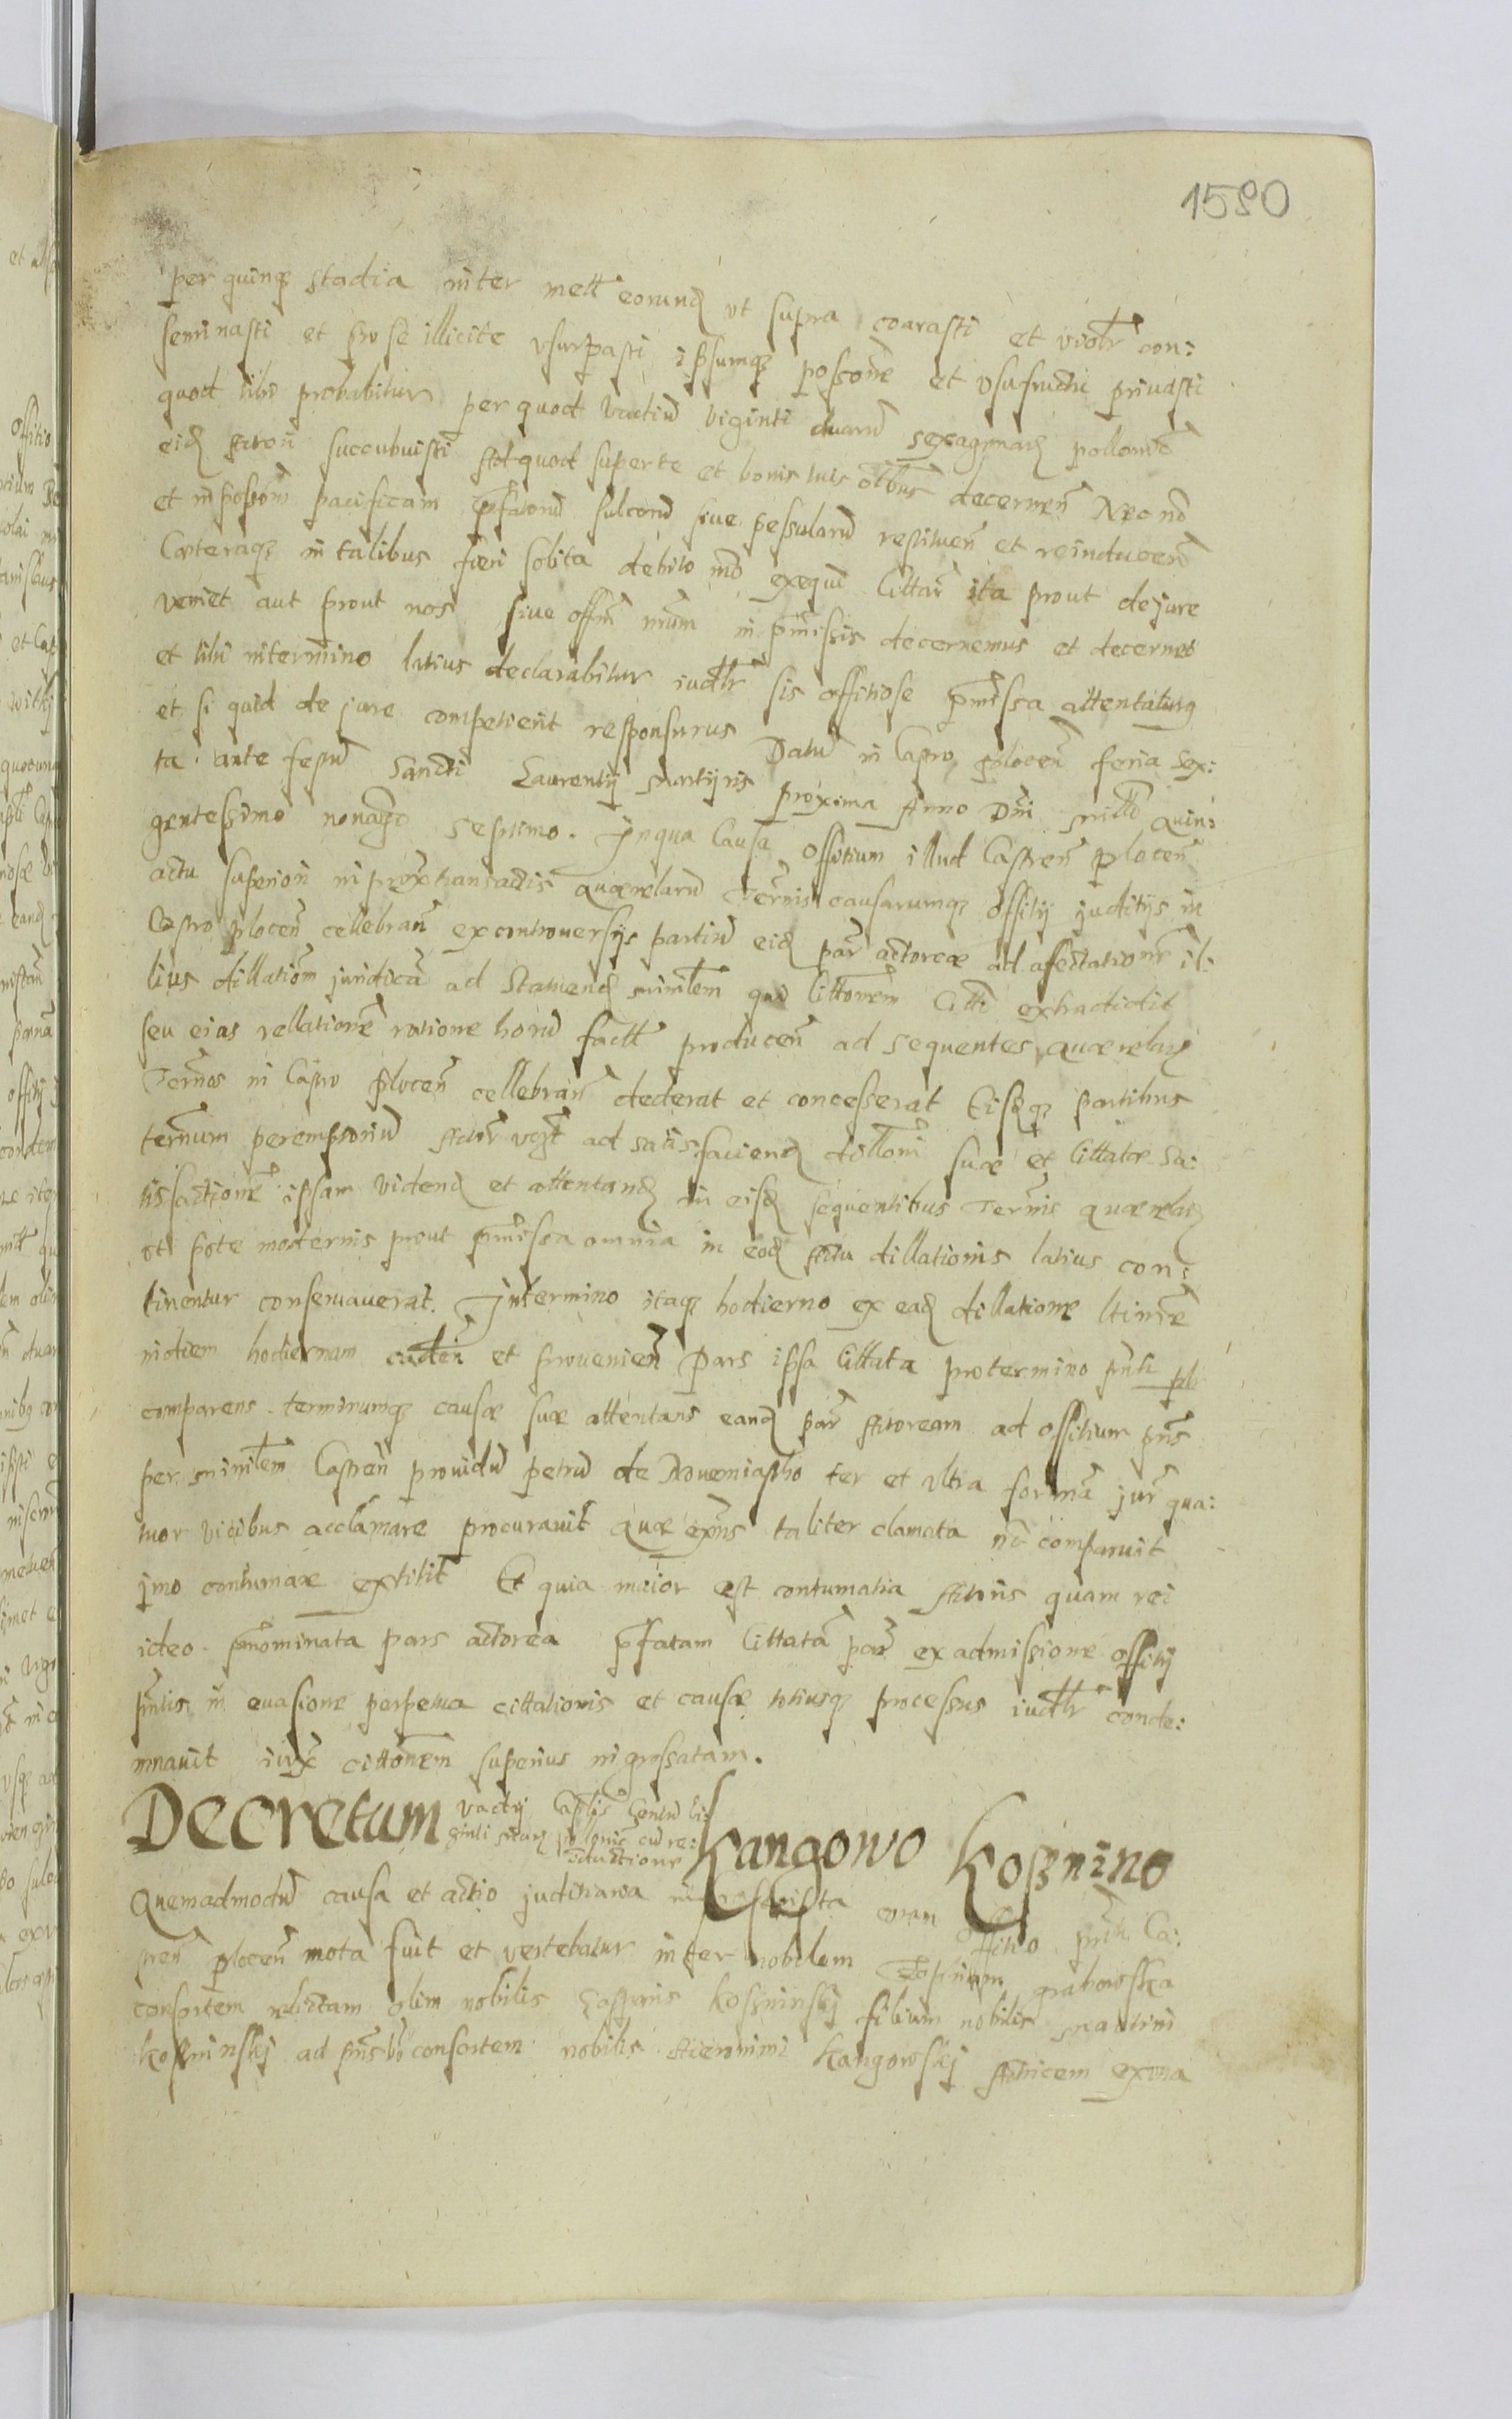 1590
per quinq3 stadia inter mett eorund ut supra coarasti et violtr con:
seminasti et pro se illicite vsurpasti ipsumq3 possone et vsufructu privasti
quod tibi probabitur per quod vadiu viginti duaru sexagenar pollonic
eid actori succubuisti Ad quod super te et bonis tuis oibus decernen Nec no
et in posson pacificam pfatoru sulcoru sive pessularu restituen et reinducen
Caeteraq3 in talibus fieri solita debito mo exequi Cittar ita prout de jure
veniet aut prout nos sive offm nrum in pmissis decernemus et decernet
et tibi in termino latius declarabitur iudtr sis offitiose pmissa attentaturg
et si quid de jure competierit responsurus Datu in Castro plocen feria sex:
ta ante festu Sancti Laurentij Martijris proxima Anno Dni Mille quin:
gentessimo nonagо septimo. In qua Causa offitium illud Castren plocen
actu superiori in prox transactis quaerelaru Ternis causarumq3 offitij juditijs in
Castro plocen cellebran ex controversijs partiu eid par actoreae ad affectatione il:
lius dillatiom juridica ad Statuend minilem qui littonem Citti extradidit
seu eias rellatione ratione horu factt producen ad sequentes quaerelar
Ternos in Castro plocen cellebran dederat et concesserat Eisq3 partibus
ternum peremptoriu Actor vero ad satisfaciend dillоni suae et Cittatae sa:
tisfactione ipsam vidend et attentand in eisd sequentibus Ternis quaerelar
uti pote modernis prout pmissa omnia in eod Actu dillationis latius con:
tinentur conservaverat. In termino itaq3 hodierno ex ead dillatione ltime
in diem hodiernam caden et provenien Pars ipsa Cittata pro termino pnti pbr
comparens terminumq3 causae suae attentans eand par Actoream ad offitium pns
per minilem Castren providu petru de Novemiastho ter et ultra forma jur qua:
tuor vicibus acclamare procuravit Quae exns taliter clamata no comparuit
jmo contumax extitit Et quia maior est contumatia Actoris quam rei
ideo pnominata pars actorea pfatam Cittata par ex admissione offitij
pntis in evasione perpetua cittationis et causae totiusq3 processus iudtr conde:
mnavit iuxt cittonem superius ingrossatam.
Decretum vadij Caplis
Kangowo Kossnino
Quemadmodu causa et actio juditiaria infrascripta coram offitio pnti Ca:
stren plocen mota fuit et vertebatur inter nobilem grabowska
consortem relictam olim nobilis Casparis Kossninskj filium nobilis Martini
Kossninskj ad pns vo consortem nobilis Hieronimi Kangowskj Actricem ex una